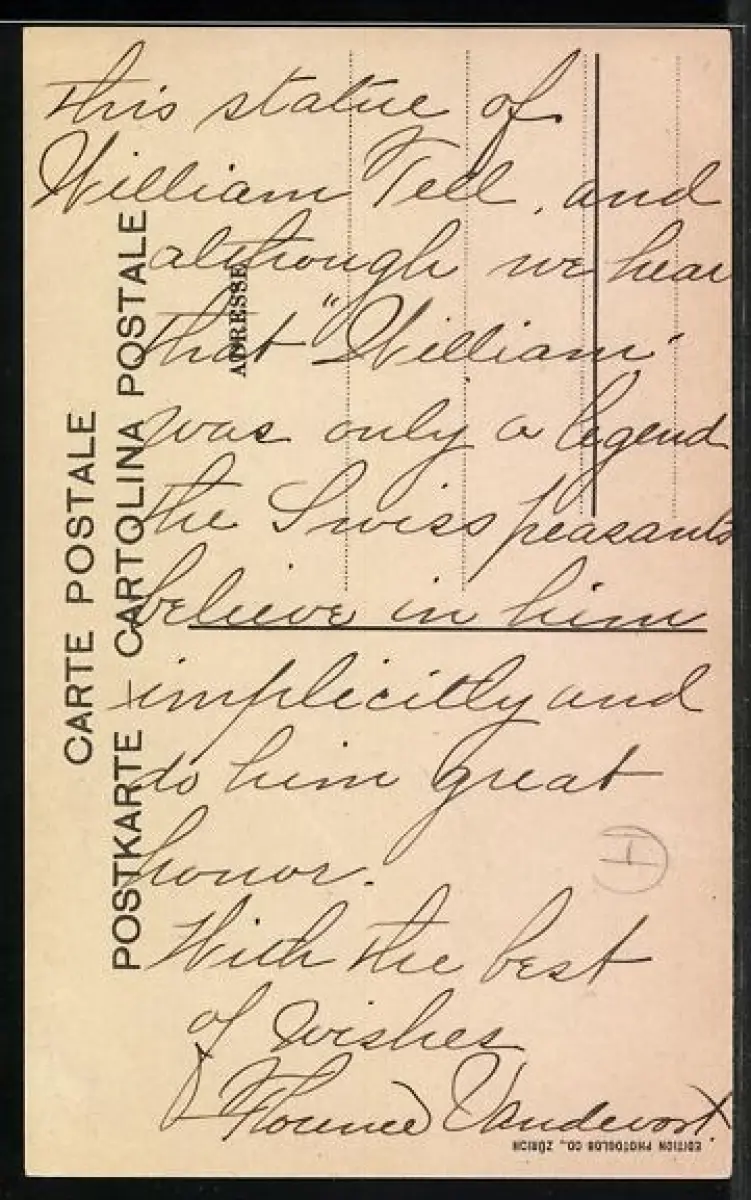 This statue of
William Tell, and
although we hear
that "William"
was only a legend
the Swiss peasants
believe in him
implicitly and
do him great
honor.
With the best
of wishes
Florence Vandevort
CARTE POSTALE
POSTKARTE CARTOLINA POSTALE
ADRESSE
EDITION PHOTOGLOB CO., ZÜRICH